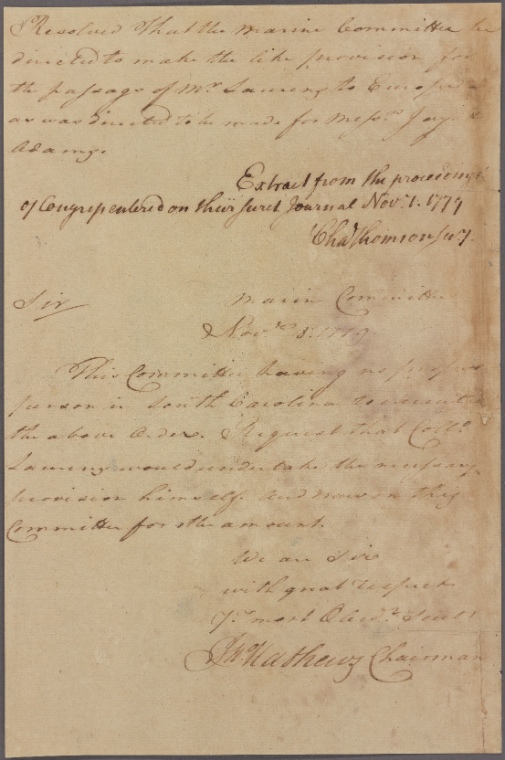 Resolved That the marine Committee be
directed to make the like provision for
the passage of Mr Laurens to Europe
as was directed to be made for Messrs Jay &
Adams.
Extract from the proceedings
of Congress entered on their secret Journal Nov. 1. 1779
Chas Thomson secy.
Sir
Marine Committee
Novr 8. 1779
This Committee having no proper
person in South Carolina to execute
the above Order. Request that Collo.
Laurens would undertake the necessary
provision himself and draw on this
Committee for the amount.
We are Sir
with great respect
Yr most Obedt Servts
Jn Mathews Chairman